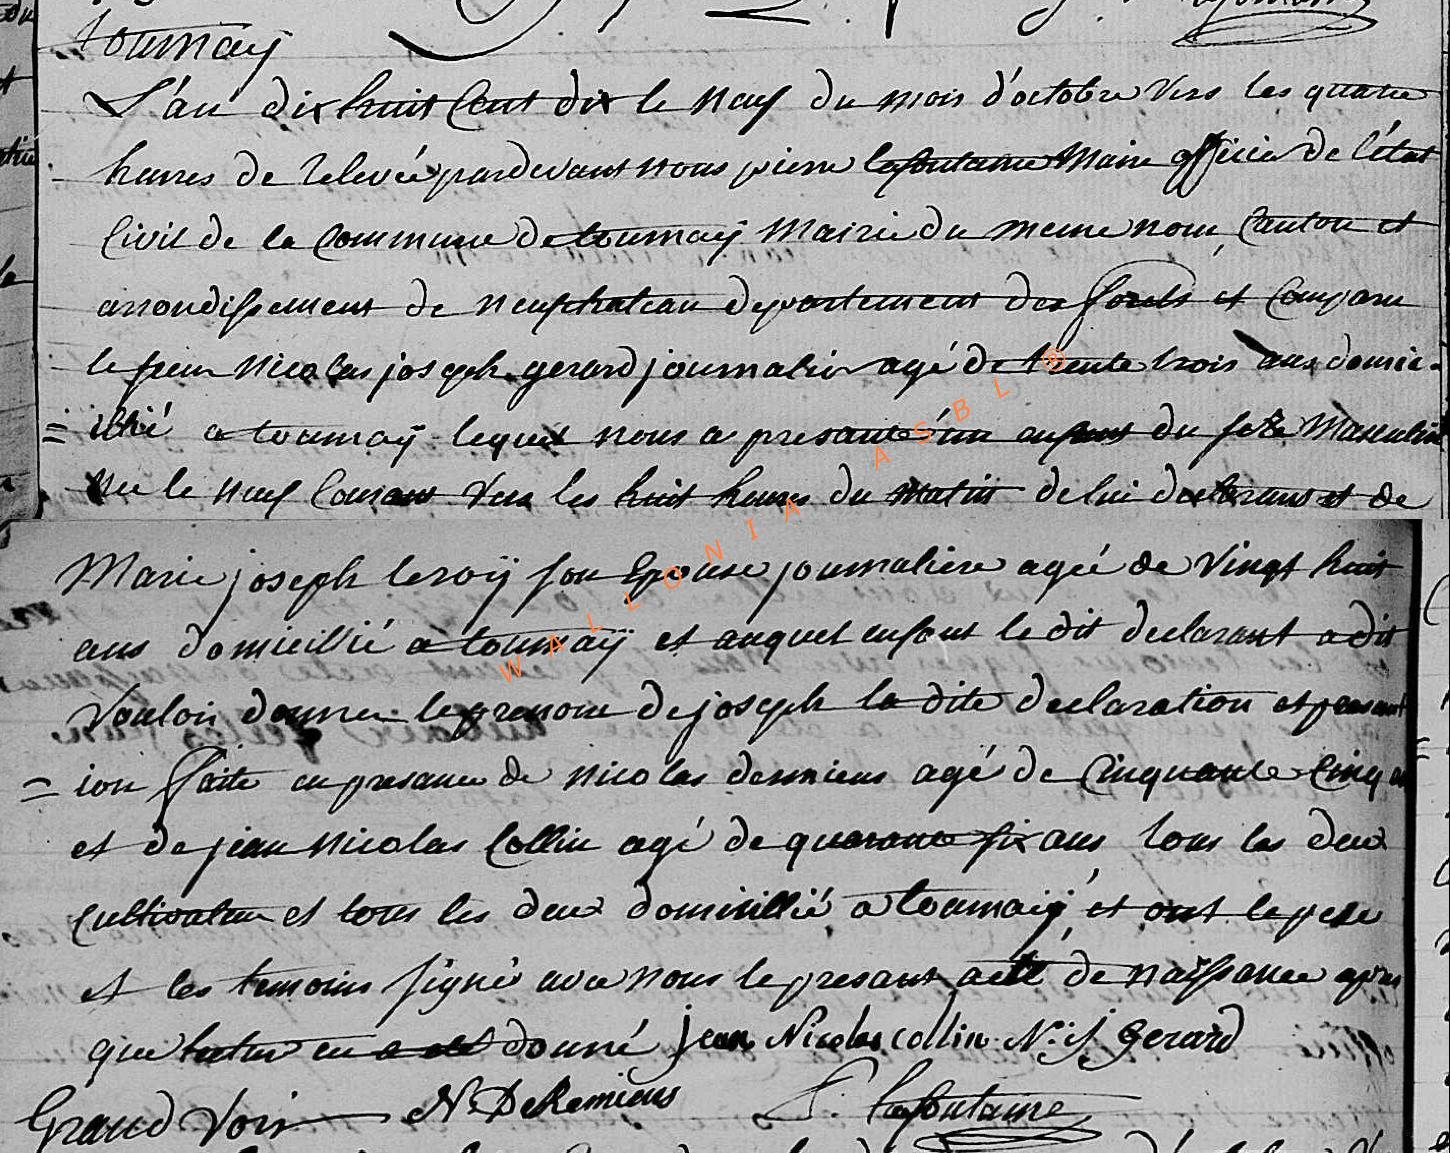 tournaÿ
L'an dix huit Cent dix le neuf du mois d'octobre vers les quatre
heures de relevée pardevant nous pierre lafontaine Maire officier de l'état
Civil de la Commune de tournaÿ Mairie du meme nom, Canton et
arrondissement de neufchateau departement des forets est Comparu
le sieur nicolas joseph gerard journalier agé de trente trois ans domic-
= illié a tournaÿ lequel nous a presanté un enfant du sexe Masculin
né le neuf Courant vers les huit heures du matin de lui declarant et de
Marie joseph leroÿ son Epouse journaliere agée de vingt huit
ans domicillié a tournaÿ et auquel enfant le dit declarant a dit
vouloir donner le prenom de joseph la dite declaration et presant
= ion faitte en presance de nicolas deremiens agé de Cinquante Cinq ans
et de jean nicolas Collin agé de quarante six ans tous les deux
Cultivateur et tous les deux domicillié a tournaÿ, et ont le pere
et les temoins signé avec nous le presant acte de naissance apres
que lecture en a eté donné jean Nicolas collin N. j Gerard
Grand Voir N. DeRemiens P. lafontaine